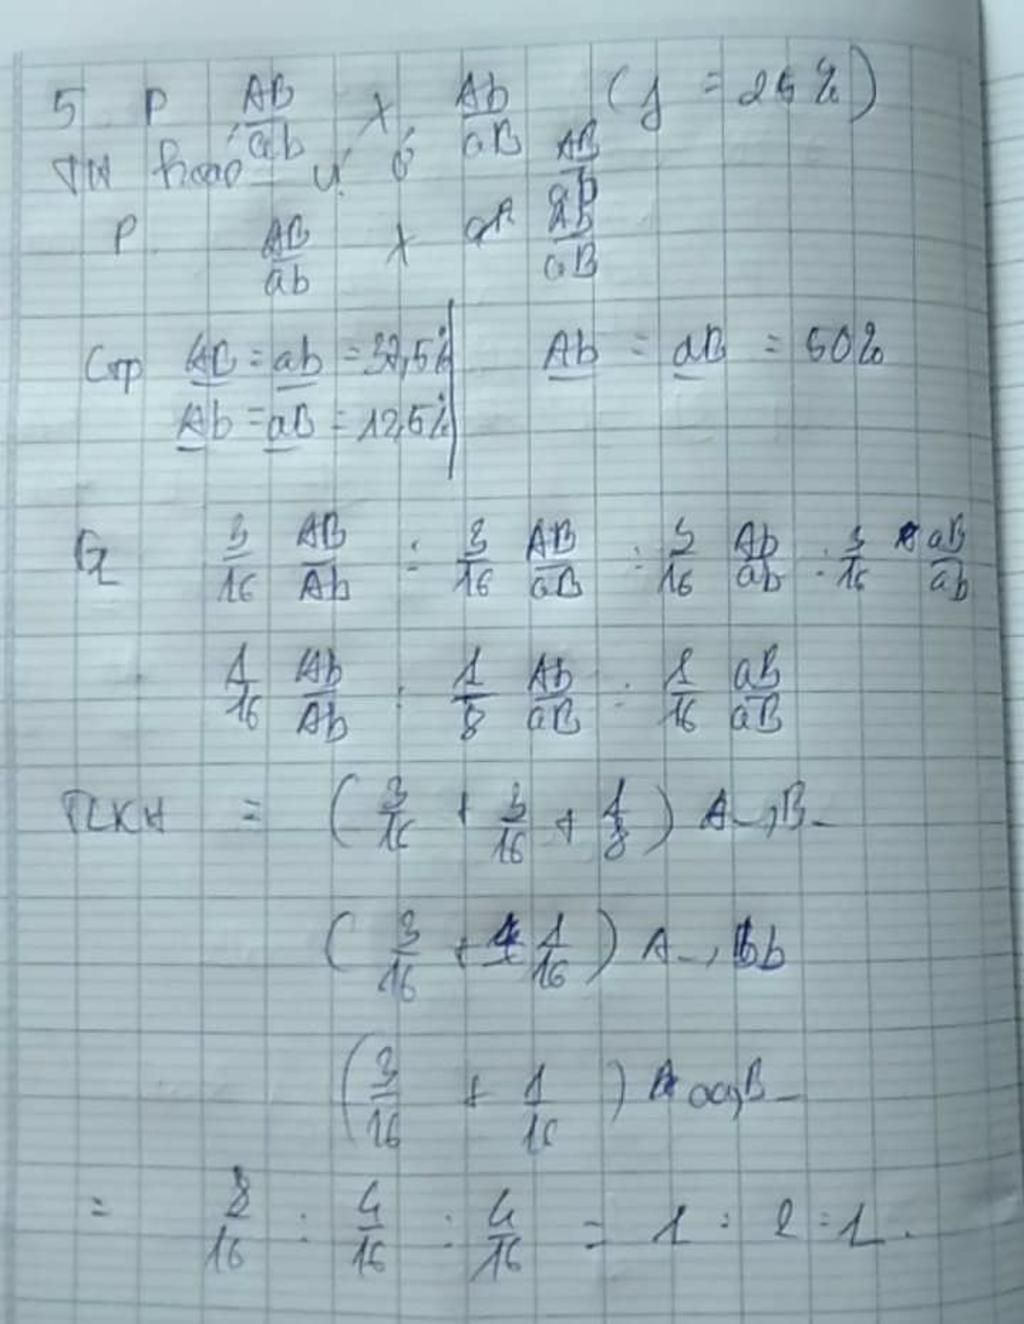 5 P AB/ab x Ab/aB (f = 25%)
TH hoán vị ở AB/ab
P AB/ab x Ab/aB
Gp AB = ab = 37,5% Ab = aB = 50%
Ab = aB = 12,5%
F1 3/16 AB/Ab : 3/16 AB/aB : 3/16 Ab/ab : 3/16 aB/ab
1/16 Ab/Ab : 1/8 Ab/aB : 1/16 aB/aB
TLKH = (3/16 + 3/16 + 1/8) A-,B-
(3/16 + 1/16) A-, bb
(3/16 + 1/16) aa,B-
= 8/16 : 4/16 : 4/16 = 1 : 2 : 1.